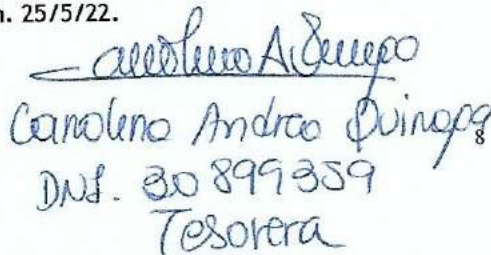 n. 25/5/22.
Carolina Andrea Quiroga
8
DNI. 30 899 359
Tesorera